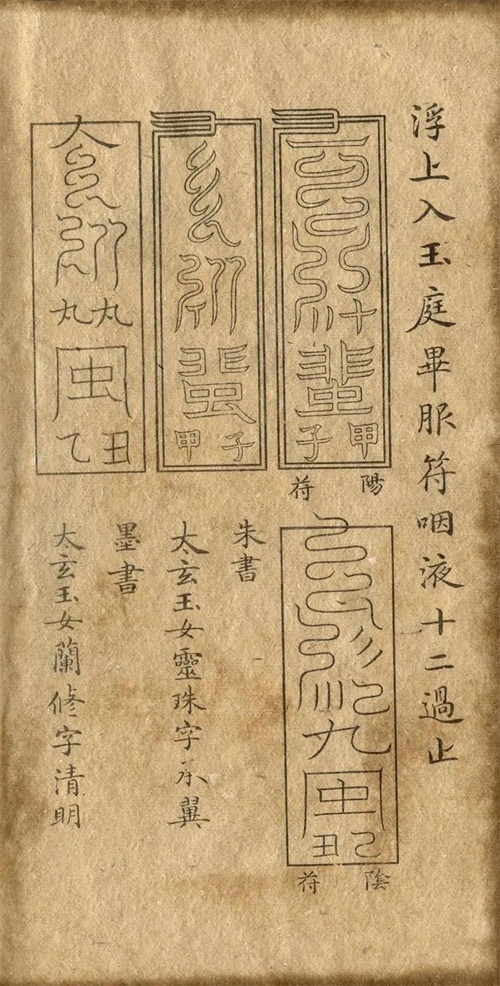 浮上入玉庭畢服符咽液十二過止
十
甲子
陽符
九
己丑
陰符
子甲
朱書
太玄玉女靈珠字承翼
丸丸
丑乙
墨書
太玄玉女蘭修字清明